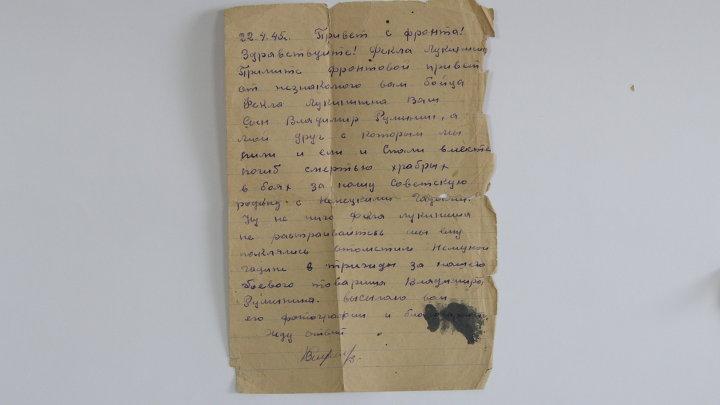 22.4.45г. Привет с фронта!
Здравствуйте! Фекла Лукинишна
Примите фронтовой привет
от незнакомого вам бойца
Фекла Лукинишна Ваш
Сын Владимир Румянин, а
мой друг с которым мы
пили и ели и Спали вместе
погиб смертью храбрых
в боях за нашу Советскую
родину с немецкими гадами.
Ну не чего Фекла Лукинишна
не растраивайтесь мы ему
поклялись отомстить Немецкой
гадине в трижды за нашего
боевого товарища Владимира
Румянина. высылаю вам
его фотографии и
Жду ответ